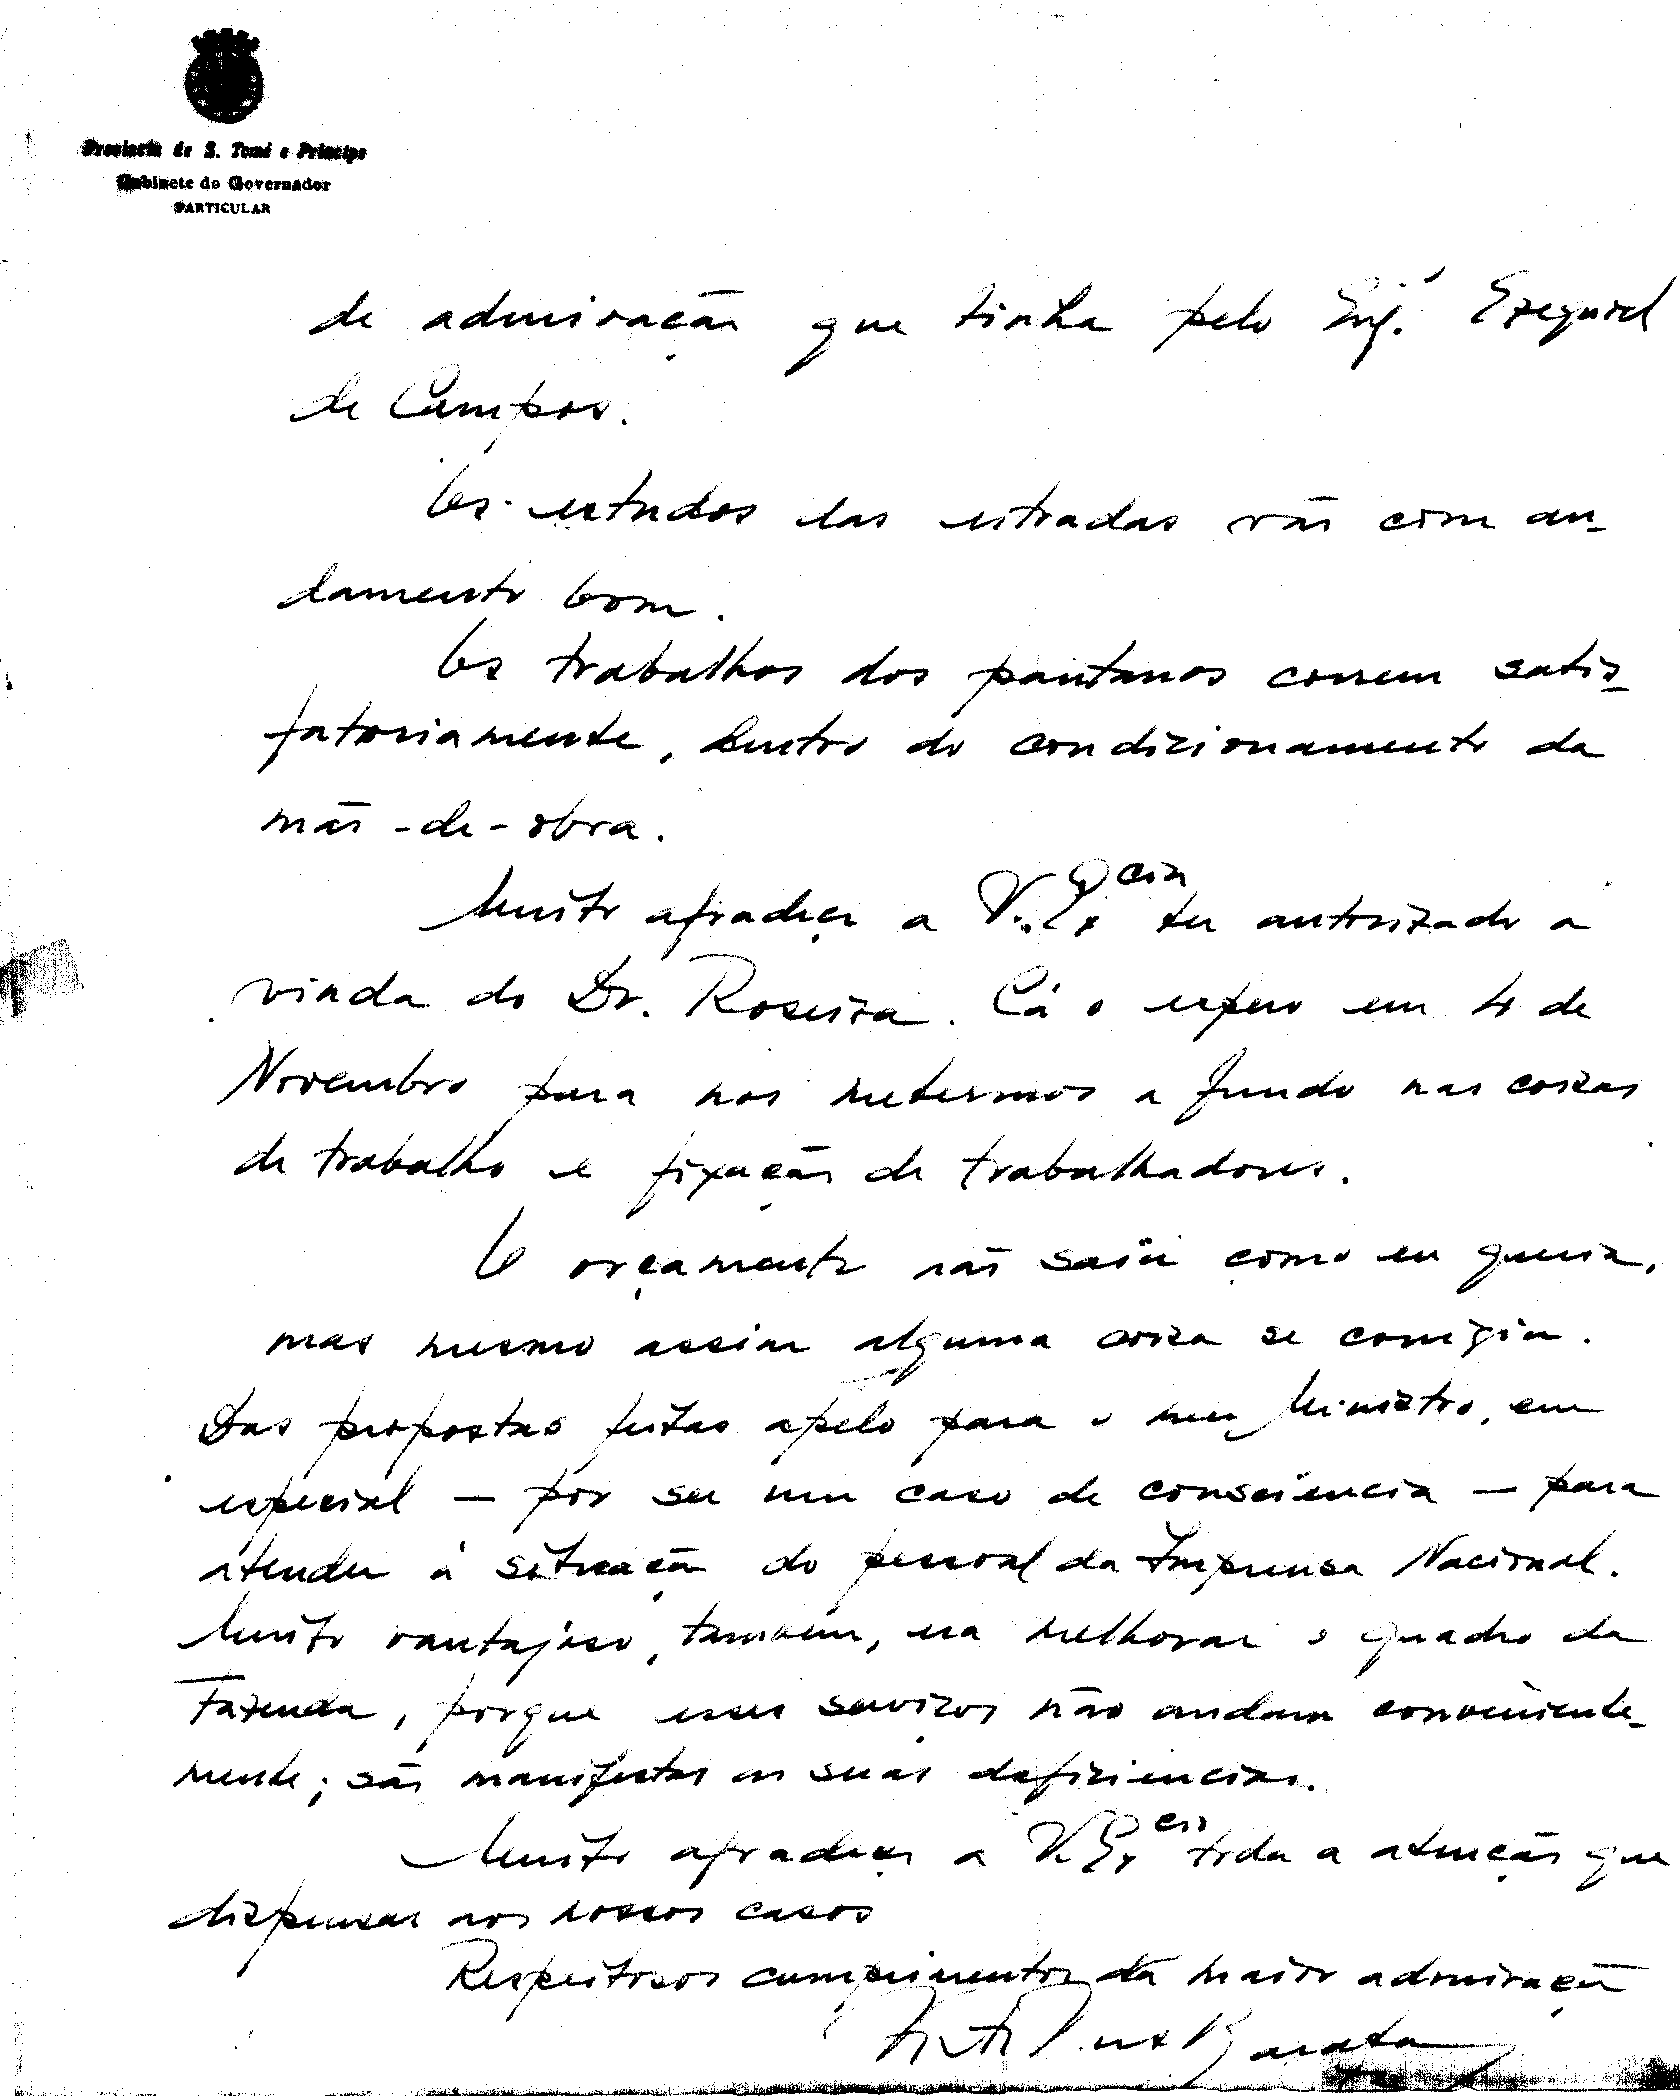 Província de S. Tomé e Príncipe
Gabinete do Governador
PARTICULAR
de admiração que tinha pelo Eng.º Ezequiel
de Campos.
Os estudos das estradas vão com an-
damento bom.
Os trabalhos dos pantanos correm satis-
fatoriamente, dentro do condicionamento da
mão-de-obra.
Muito agradeço a V. Excia ter autorizado a
vinda do Dr. Roseira. Cá o espero em 4 de
Novembro para nos metermos a fundo nas coisas
de trabalho e fixação de trabalhadores.
O orçamento não saíu como eu queria,
mas mesmo assim alguma coisa se corrigiu.
Das propostas feitas apelo para o meu Ministro, em
especial — por ser um caso de consciencia — para
atender à situação do pessoal da Imprensa Nacional.
Muito vantajoso, tambem, era melhorar o quadro da
Fazenda, porque esses serviços não andam conveniente-
mente; são manifestas as suas deficiencias.
Muito agradeço a V. Excia toda a atenção que
dispensar aos nossos casos
Respeitosos cumprimentos da maior admiração